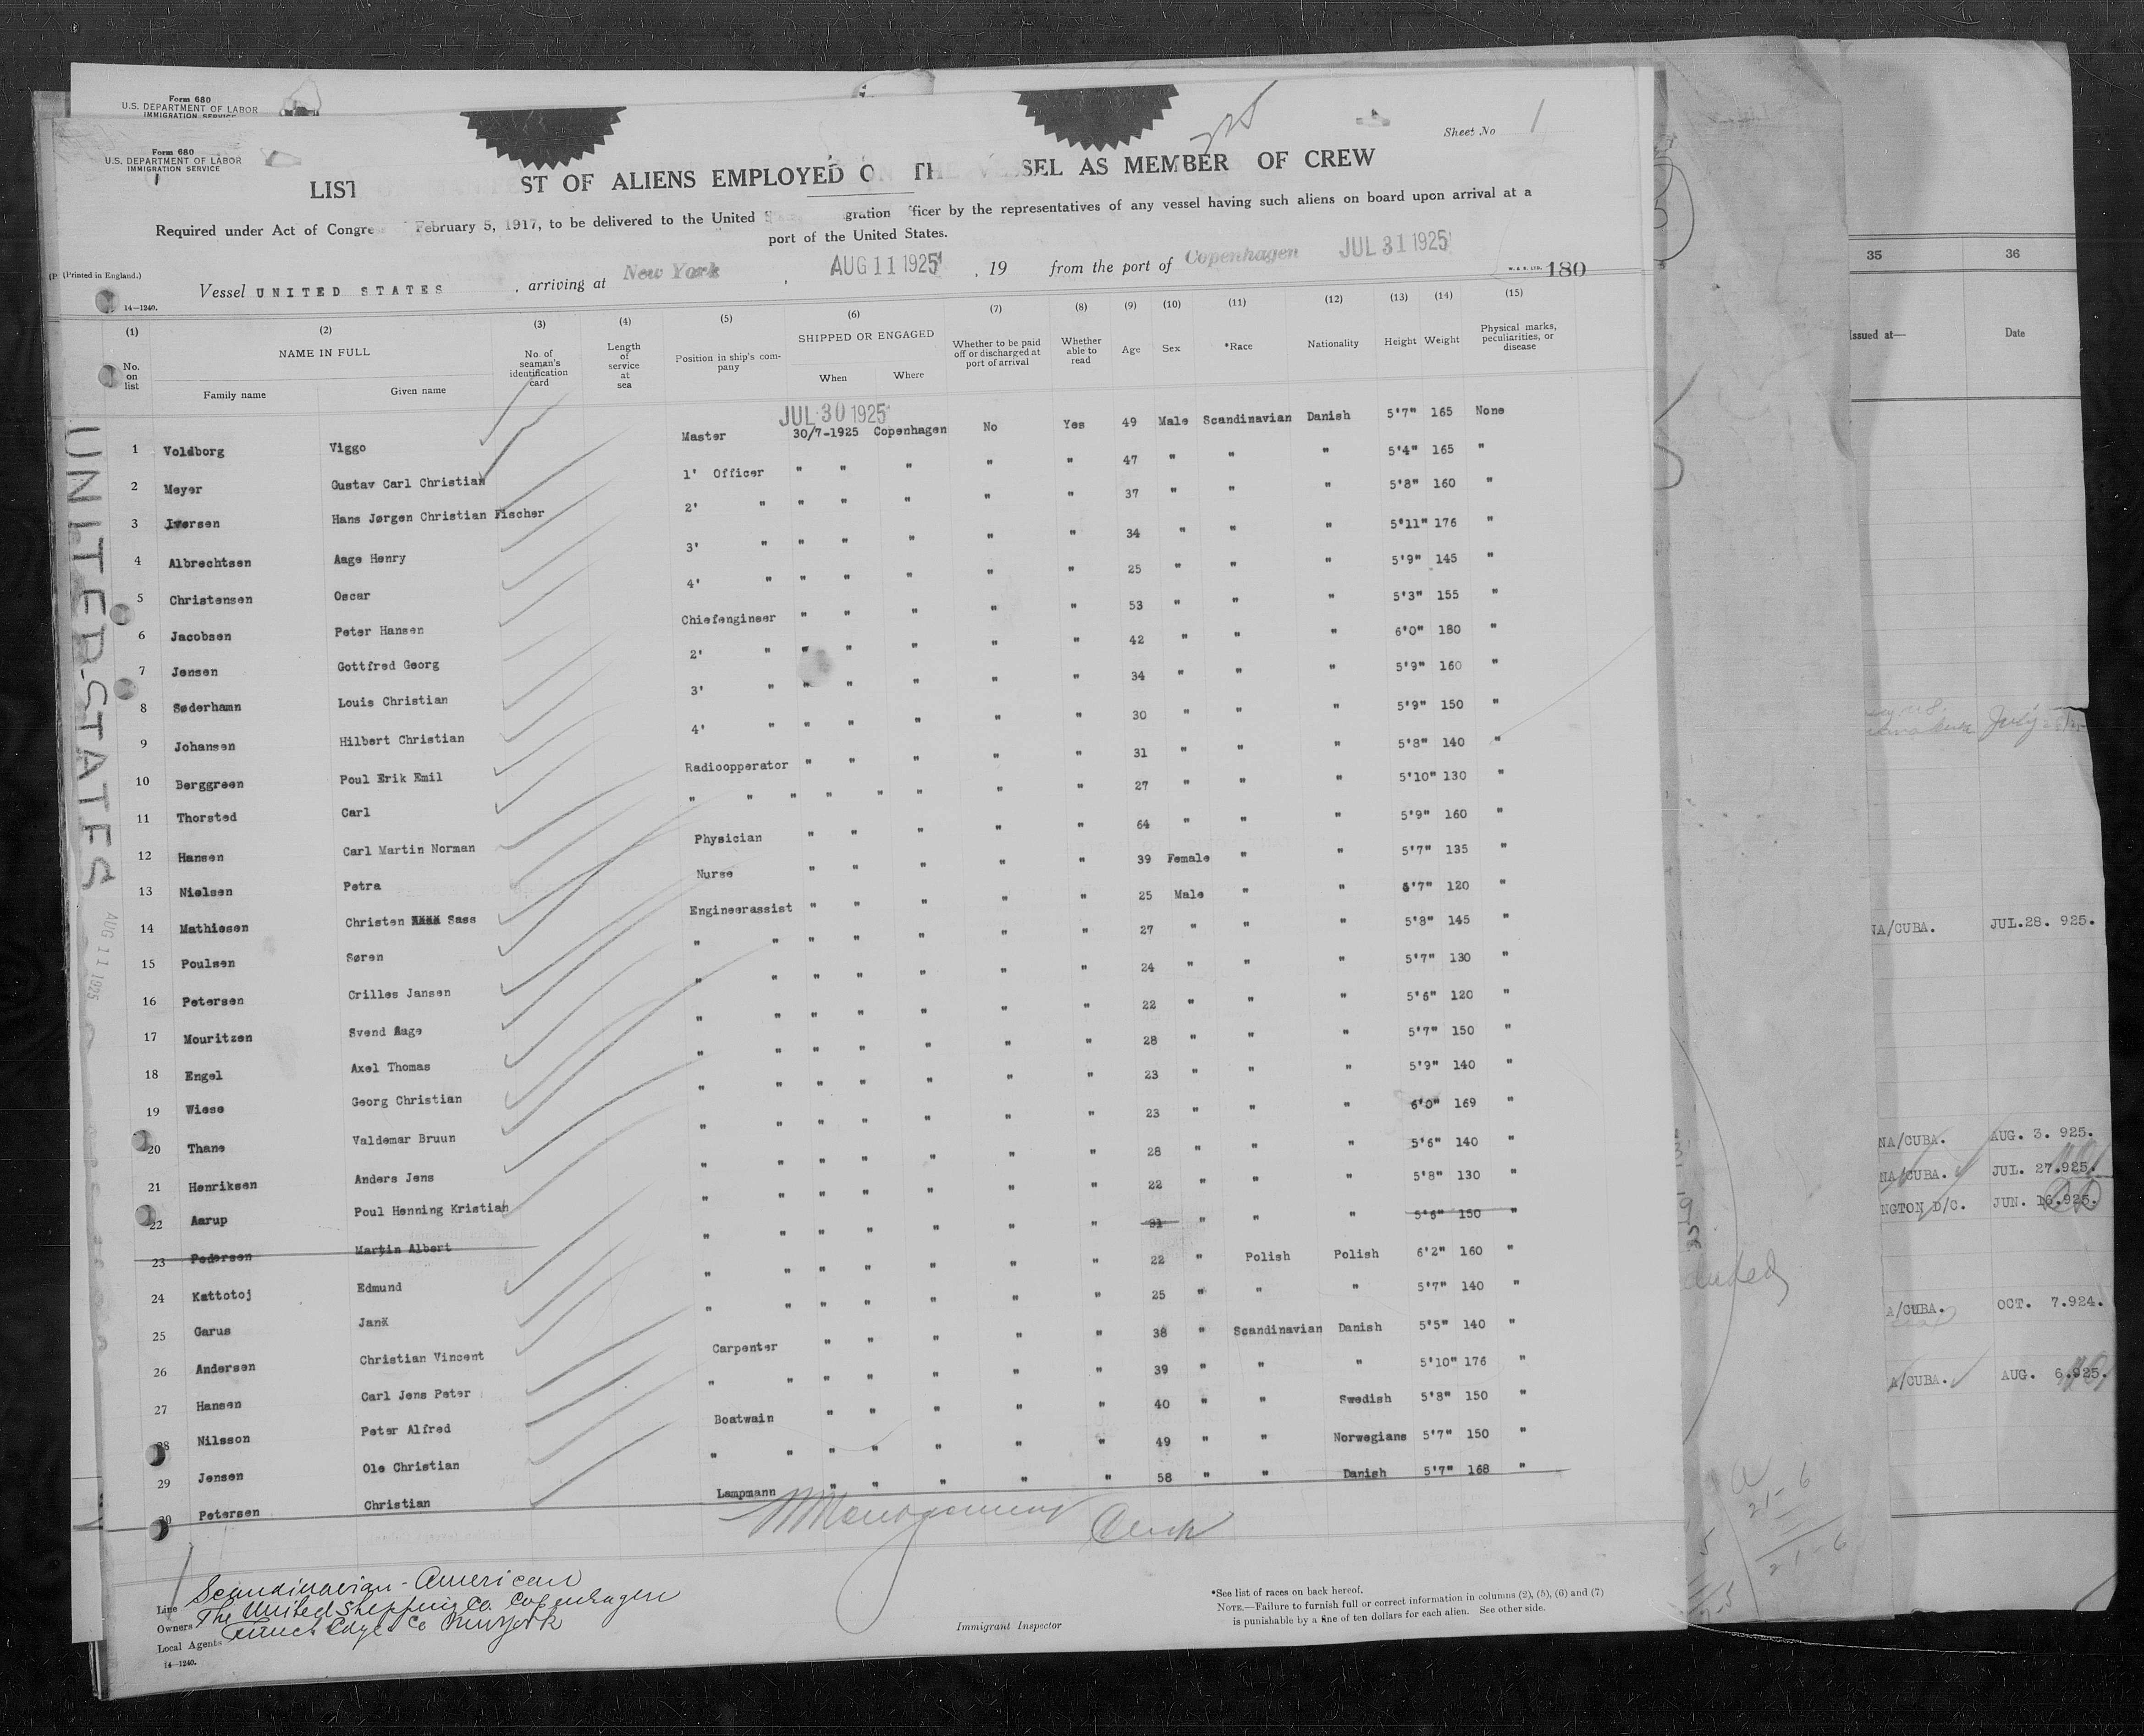 Form 680
U.S. DEPARTMENT OF LABOR
IMMIGRATION SERVICE
Form 680
U.S. DEPARTMENT OF LABOR
IMMIGRATION SERVICE
Sheet No 1
LIST ST OF ALIENS EMPLOYED O TH SEL AS MEMBER OF CREW
Required under Act of Congre February 5, 1917, to be delivered to the United gration fficer by the representatives of any vessel having such aliens on board upon arrival at a
port of the United States.
(Printed in England.)
14—1240.
Vessel UNITED STATES , arriving at New York , AUG 11 1925 , 19 from the port of Copenhagen JUL 31 1925
180
(1) (2) (3) (4) (5) (6) (7) (8) (9) (10) (11) (12) (13) (14) (15)
No. on list NAME IN FULL Family name Given name No. of seaman's identification card Length of service at sea Position in ship's company SHIPPED OR ENGAGED When Where Whether to be paid off or discharged at port of arrival Whether able to read Age Sex *Race Nationality Height Weight Physical marks, peculiarities, or disease
JUL 30 1925
1 Voldborg Viggo Master 30/7-1925 Copenhagen No Yes 49 Male Scandinavian Danish 5'7" 165 None
2 Meyer Gustav Carl Christian 1' Officer " " " " " 47 " " " 5'4" 165 "
3 Iversen Hans Jørgen Christian Fischer 2' " " " " " " 37 " " " 5'8" 160 "
4 Albrechtsen Aage Henry 3' " " " " " " 34 " " " 5'11" 176 "
5 Christensen Oscar 4' " " " " " " 25 " " " 5'9" 145 "
6 Jacobsen Peter Hansen Chiefengineer " " " " " 53 " " " 5'3" 155 "
7 Jensen Gottfred Georg 2' " " " " " " 42 " " " 6'0" 180 "
8 Søderhamn Louis Christian 3' " " " " " " 34 " " " 5'9" 160 "
9 Johansen Hilbert Christian 4' " " " " " " 30 " " " 5'9" 150 "
10 Berggreen Poul Erik Emil Radioopperator " " " " " 31 " " " 5'8" 140 "
11 Thorsted Carl " " " " " " " " 27 " " " 5'10" 130 "
12 Hansen Carl Martin Norman Physician " " " " " 64 " " " 5'9" 160 "
13 Nielsen Petra Nurse " " " " " 39 Female " " 5'7" 135 "
14 Mathiesen Christen XXXX Sass Engineerassist " " " " " 25 Male " " 5'7" 120 "
15 Poulsen Søren " " " " " " " 27 " " " 5'8" 145 "
16 Petersen Crilles Jansen " " " " " " " 24 " " " 5'7" 130 "
17 Mouritzen Svend Aage " " " " " " " 22 " " " 5'6" 120 "
18 Engel Axel Thomas " " " " " " " 28 " " " 5'7" 150 "
19 Wiese Georg Christian " " " " " " " 23 " " " 5'9" 140 "
20 Thane Valdemar Bruun " " " " " " " 23 " " " 6'0" 169 "
21 Henriksen Anders Jens " " " " " " " 28 " " " 5'6" 140 "
22 Aarup Poul Henning Kristian " " " " " " " 22 " " " 5'8" 130 "
23 Pedersen Martin Albert " " " " " " " 31 " " " 5'6" 150 "
24 Kattotoj Edmund " " " " " " " 22 " Polish Polish 6'2" 160 "
25 Garus Jank " " " " " " " 25 " " " 5'7" 140 "
26 Andersen Christian Vincent Carpenter " " " " " 38 " Scandinavian Danish 5'5" 140 "
27 Hansen Carl Jens Peter " " " " " " " 39 " " " 5'10" 176 "
28 Nilsson Peter Alfred Boatwain " " " " " 40 " " Swedish 5'8" 150 "
29 Jensen Ole Christian " " " " " " " 49 " " Norwegians 5'7" 150 "
30 Petersen Christian Lampmann " " " " " 58 " " Danish 5'7" 168 "
UNITED STATES
AUG 11 1925
Line Scandinavian-American
Owners The United Shipping Co. Copenhagen
Local Agents Funch Edye & Co New York
14—1240.
Immigrant Inspector
*See list of races on back hereof.
NOTE.—Failure to furnish full or correct information in columns (2), (5), (6) and (7)
is punishable by a fine of ten dollars for each alien. See other side.
35 36
Issued at— Date
July
NA/CUBA. JUL.28. 925.
NA/CUBA. AUG. 3. 925.
NA/CUBA. JUL. 27.925.
NGTON D/C. JUN. 16.925.
A/CUBA. OCT. 7.924.
A/CUBA. AUG. 6.925.
21-6
21-6